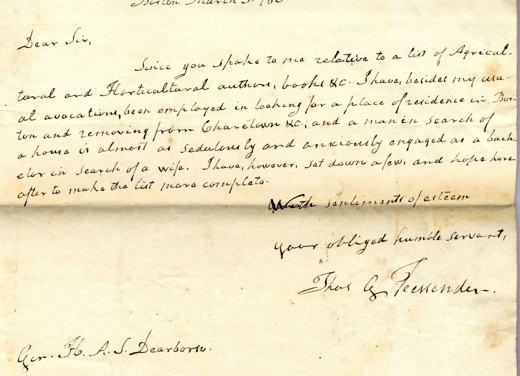 Boston March
Dear Sir,
Since you spoke to me relative to a list of Agricul-
tural and Horticultural authors, books &c. I have, besides my usu-
al avocations, been employed in looking for a place of residence in Bos-
ton and removing from Charletown &c, and a man in search of
a house is almost as sedulously and anxiously engaged as a bach-
elor in search of a wife. I have, however, set down a few, and hope here-
after to make the list more complete.
With sentiments of esteem
your obliged humble servant,
Thos G Fessenden.
Gen. H. A. S. Dearborn.